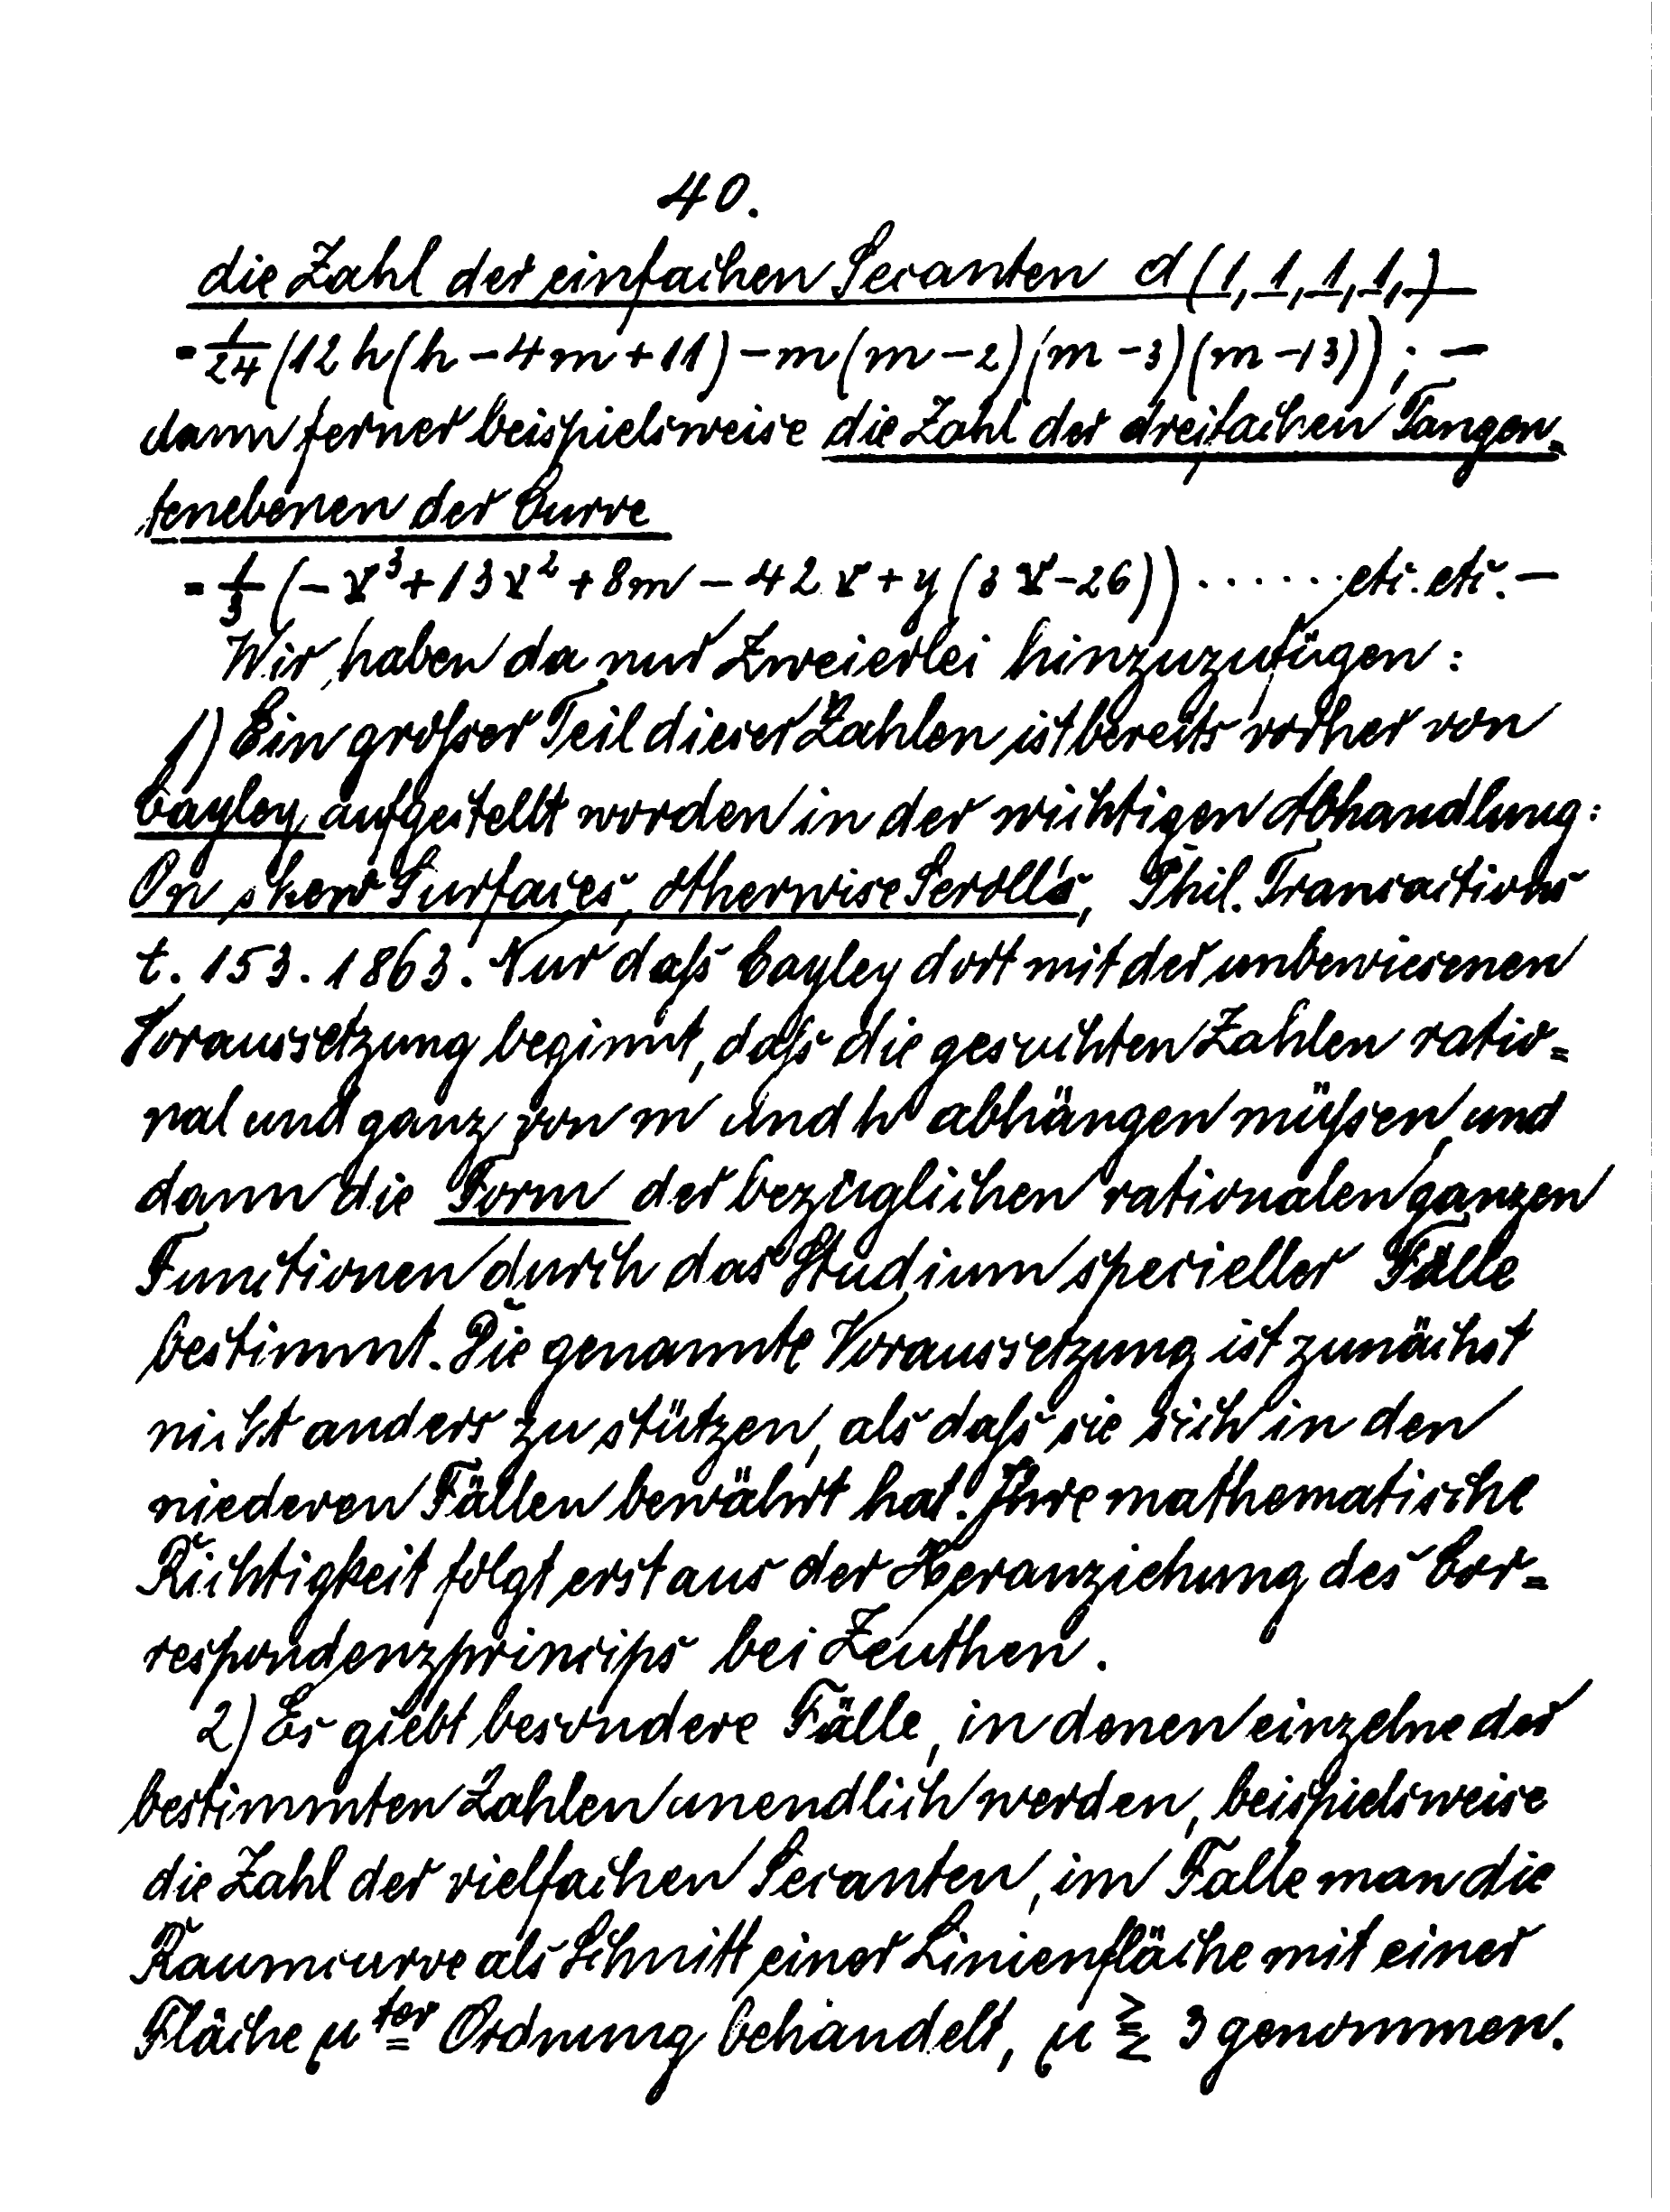 40.
die Zahl der einfachen Secanten d (1, 1, 1, 1,)
= 1/24 (12 h (h - 4m + 11) - m (m - 2) (m - 3) (m - 13)) ; —
dann ferner beispielsweise die Zahl der dreifachen Tangen-
tenebenen der Curve
= 1/3 (- r³ + 13 r² + 8m - 42 r + y (3 r - 26)) ...... etc. etc. —
Wir haben da nur Zweierlei hinzuzufügen:
1) Ein großer Teil dieser Zahlen ist bereits vorher von
Cayley aufgestellt worden in der wichtigen Abhandlung:
On skew Surfaces, otherwise Scroll's, Phil. Transactions
t. 153. 1863. Nur daß Cayley dort mit der unbewiesenen
Voraussetzung beginnt, daß die gesuchten Zahlen ratio=
nal und ganz von m und h abhängen müßen und
dann die Form der bezüglichen rationalen ganzen
Functionen durch das Studium specieller Fälle
bestimmt. Die genannte Voraussetzung ist zunächst
nicht anders zu stützen, als daß sie sich in den
niederen Fällen bewährt hat. Ihre mathematische
Richtigkeit folgt erst aus der Heranziehung des Cor=
respondenzprincips bei Zeuthen.
2) Es giebt besondere Fälle, in denen einzelne der
bestimmten Zahlen unendlich werden, beispielsweise
die Zahl der vielfachen Secanten, im Falle man die
Raumcurve als Schnitt einer Linienfläche mit einer
Fläche μ ter Ordnung behandelt, μ ⪌ 3 genommen.